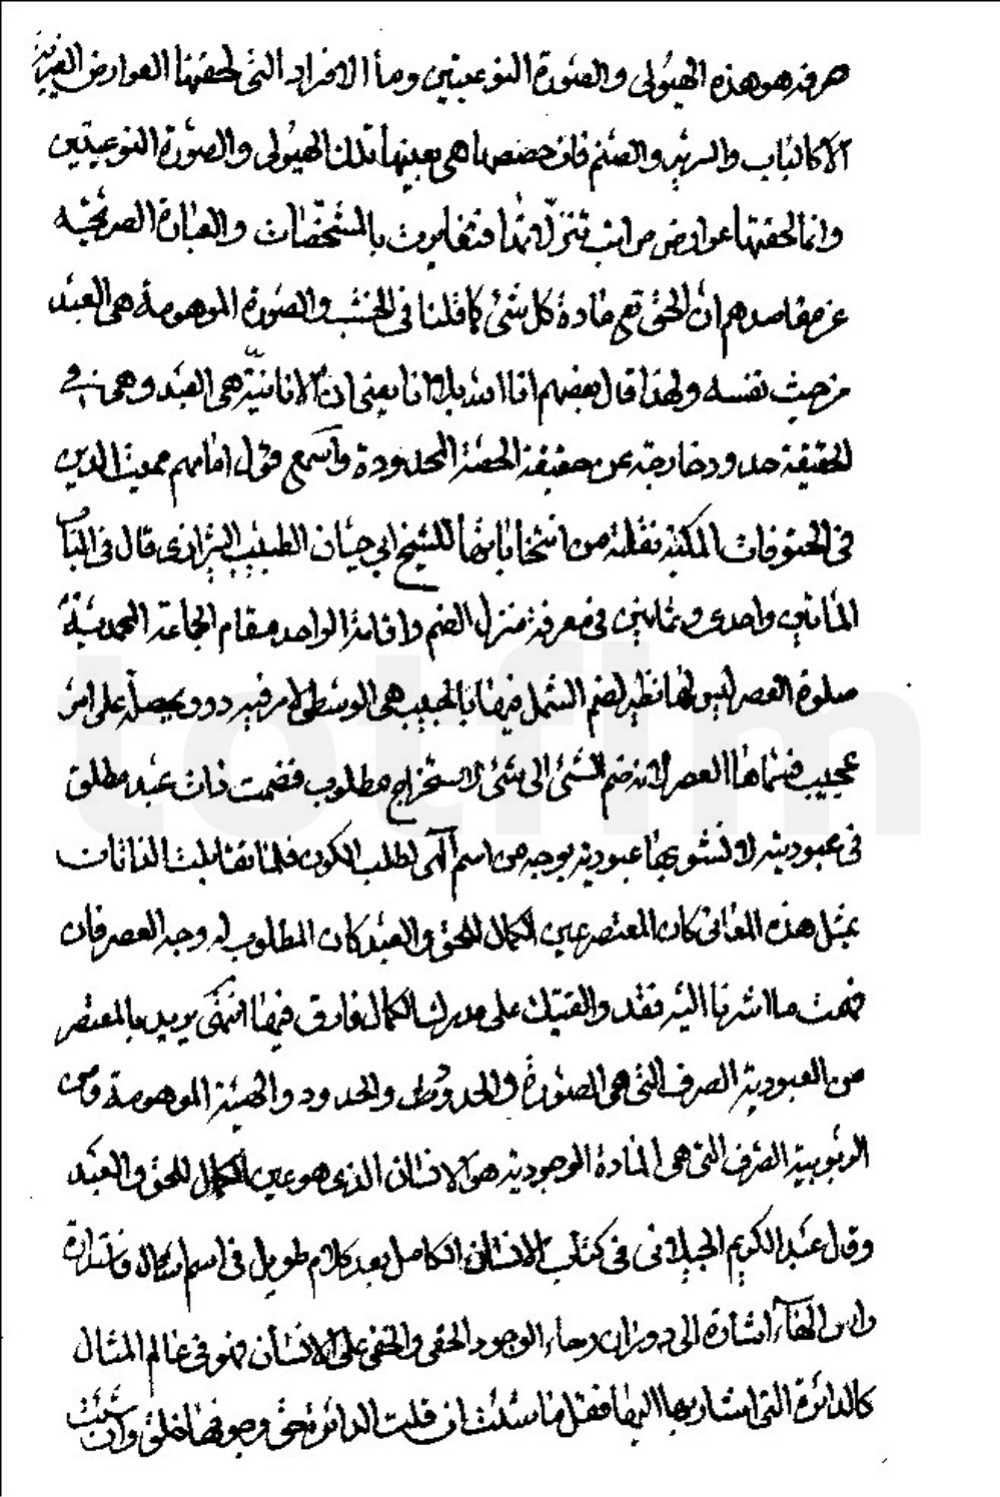 صرفه هو هذه الهيولى والصورة النوعيتين وما الافراد التي لحقتها العوارض الغريبة
كالباب والسرير والصنم فان حصصها هي بعينها تلك الهيولى والصورة النوعيتين
وانما لحقتها عوارض مراتب تنزلاتها فتغايرت بالمشخصات والعبارة الصريحة
عن مقاصدهم ان الحق تع مادة كل شئ كما قلنا في الخشب والصورة الموهومة هي العبد
من حيث نفسه ولهذا قال بعضهم انا الله بلا انا يعني ان الانانية هي العبد وهي في
الحقيقة حدود خارجة عن حقيقة الحصة المحدودة واسمع قول امامهم مميت الدين
في الحتوفات المكية نقلته من انتخاباتها للشيخ ابي حيان الطبيب الشيرازي قال في الباب
المأتين واحدى وثمانين في معرفة منزل الضم واقامة الواحد مقام الجماعة المحمدية
صلوة العصر ليس لها نظير لضم الشمل فيها بالحبيب هي الوسطى لامر فيه دور يحصله على امر
عجيب فسماها العصر لانه ضم الشئ الى شئ لاستخراج مطلوب فضمت ذات عبد مطلق
في عبوديته لا تشوبها عبودية بوجه من اسم الهي لطلب الكون فلما تقابلت الذاتان
بمثل هذه المعاني كان المعتصر عين الكمال للحق والعبد كان المطلوب له وجد العصر فان
فهمت ما اشرنا اليه فقد والقيتك على مدرك الكمال فارق فيها انتهى يريد بالمعتصر
من العبودية الصرف التي هي الصورة والحدوث والحدود والهيئة الموهومة ومن
الربوبية الصرف التي هي المادة الوجودية هو الانسان الذي هو عين الكمال للحق والعبد
وقال عبد الكريم الجيلاني في كتاب الانسان الكامل بعد كلام طويل في اسم الله قال فاستدارة
راس الهاء اشارة الى دوران رحاء الوجود الحقي والخلقي على الانسان فهو في عالم المثال
كالدائرة التي اشار بها اليها فقل ما شئت ان قلت الدائرة حق وجوفها خلق وان شئت